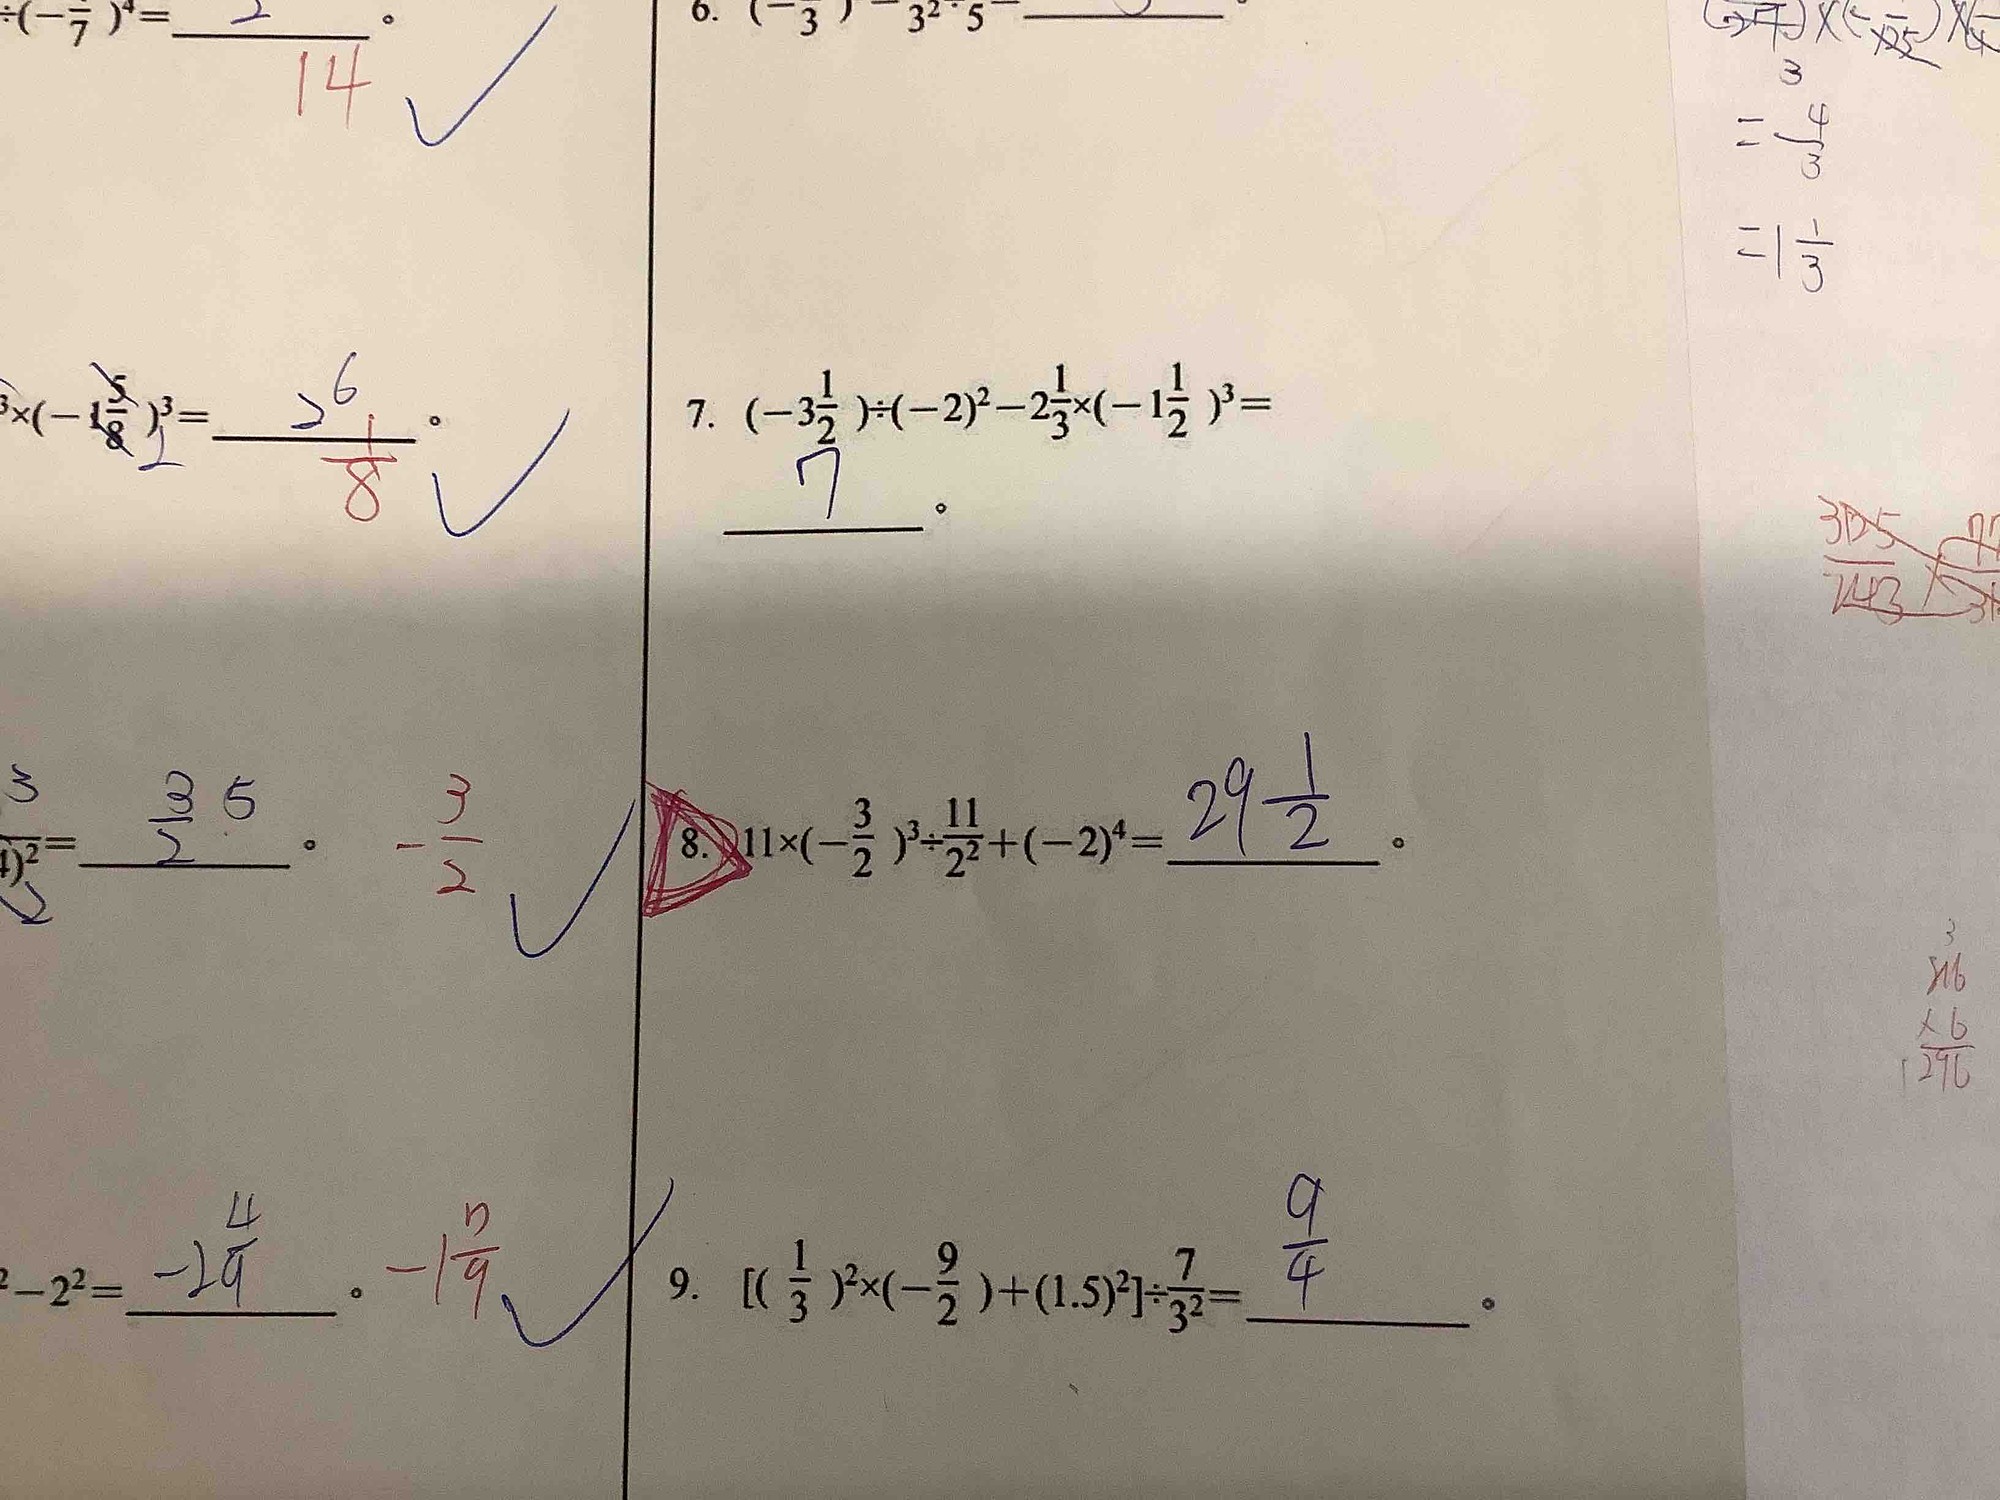 ÷(− /7)⁴= 2 。
14
³×(−1 5/8)³= 2 6 。
1/8
3
4)²= 3/2 5 。 − 3/2
2
²−2²= −2 4/9 。 −1 n/9
6. (− /3) − 3²÷5= 。
7. (−3 1/2)÷(−2)²−2 1/3×(−1 1/2)³=
7 。
8. 11×(−3/2)³÷11/2²+(−2)⁴= 29 1/2 。
9. [(1/3)²×(−9/2)+(1.5)²]÷7/3²= 9/4 。
3
= 4/3
=1 1/3
243
3
×6
1296